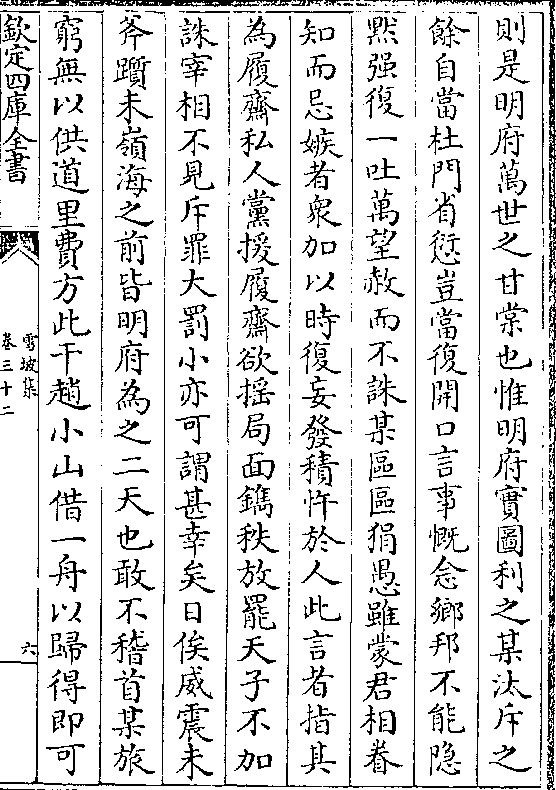 則是明府萬世之甘棠也惟明府實圖利之某汰斥之
餘自當杜門省愆豈當復開口言事慨念鄉邦不能隠
黙强復一吐萬望赦而不誅某區區狷愚雖蒙君相眷
知而忌嫉者衆加以時復妄發積忤於人此言者指其
為履齋私人黨援履齋欲揺局面鐫秩放罷天子不加
誅宰相不見斥罪大罰小亦可謂甚幸矣日俟威震未
斧躓未嶺海之前皆明府為之二天也敢不稽首某旅
窮無以供道里費方此干趙小山借一舟以歸得即可
欽定四庫全書
雪坡集
卷三十二
六